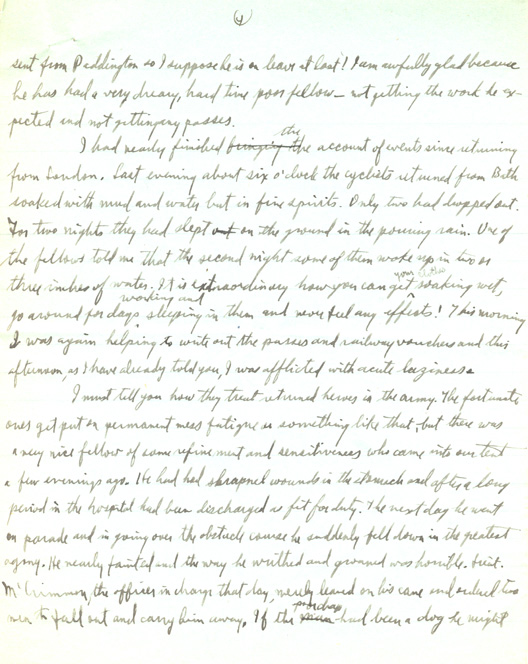 4
sent from Paddington so I suppose he is on leave at last! I am awfully glad because
he has had a very dreary, hard time poor fellow - not getting the work he ex-
pected and not getting any passes.
I had nearly finished bringing the the account of events since returning
from London. Last evening about six o'clock the cyclists returned from Bath
soaked with mud and water but in fine spirits. Only two had dropped out.
For two nights they had slept out on the ground in the pouring rain. One of
the fellows told me that the second night some of them woke up in two or
three inches of water. It is extraordinary how you can get your clothes soaking wet,
go around for days working and sleeping in them and never feel any effects! This morning
I was again helping to write out the passes and railway vouchers and this
afternoon, as I have already told you, I was afflicted with acute laziness.
I must tell you how they treat returned heroes in the army. The fortunate
ones get put on permanent mess fatigue or something like that, but there was
a very nice fellow of some refinement and sensitiveness who came into our tent
a few evenings ago. He had had shrapnel wounds in the stomach and after a long
period in the hospital had been discharged as fit for duty. The next day he went
on parade and in going over the obstacle course he suddenly fell down in the greatest
agony. He nearly fainted and the way he writhed and groaned was horrible. Lieut.
McCrimmon, the officer in charge that day, merely leaned on his cane and ordered two
men to fall out and carry him away. If the man poor chap had been a dog he might